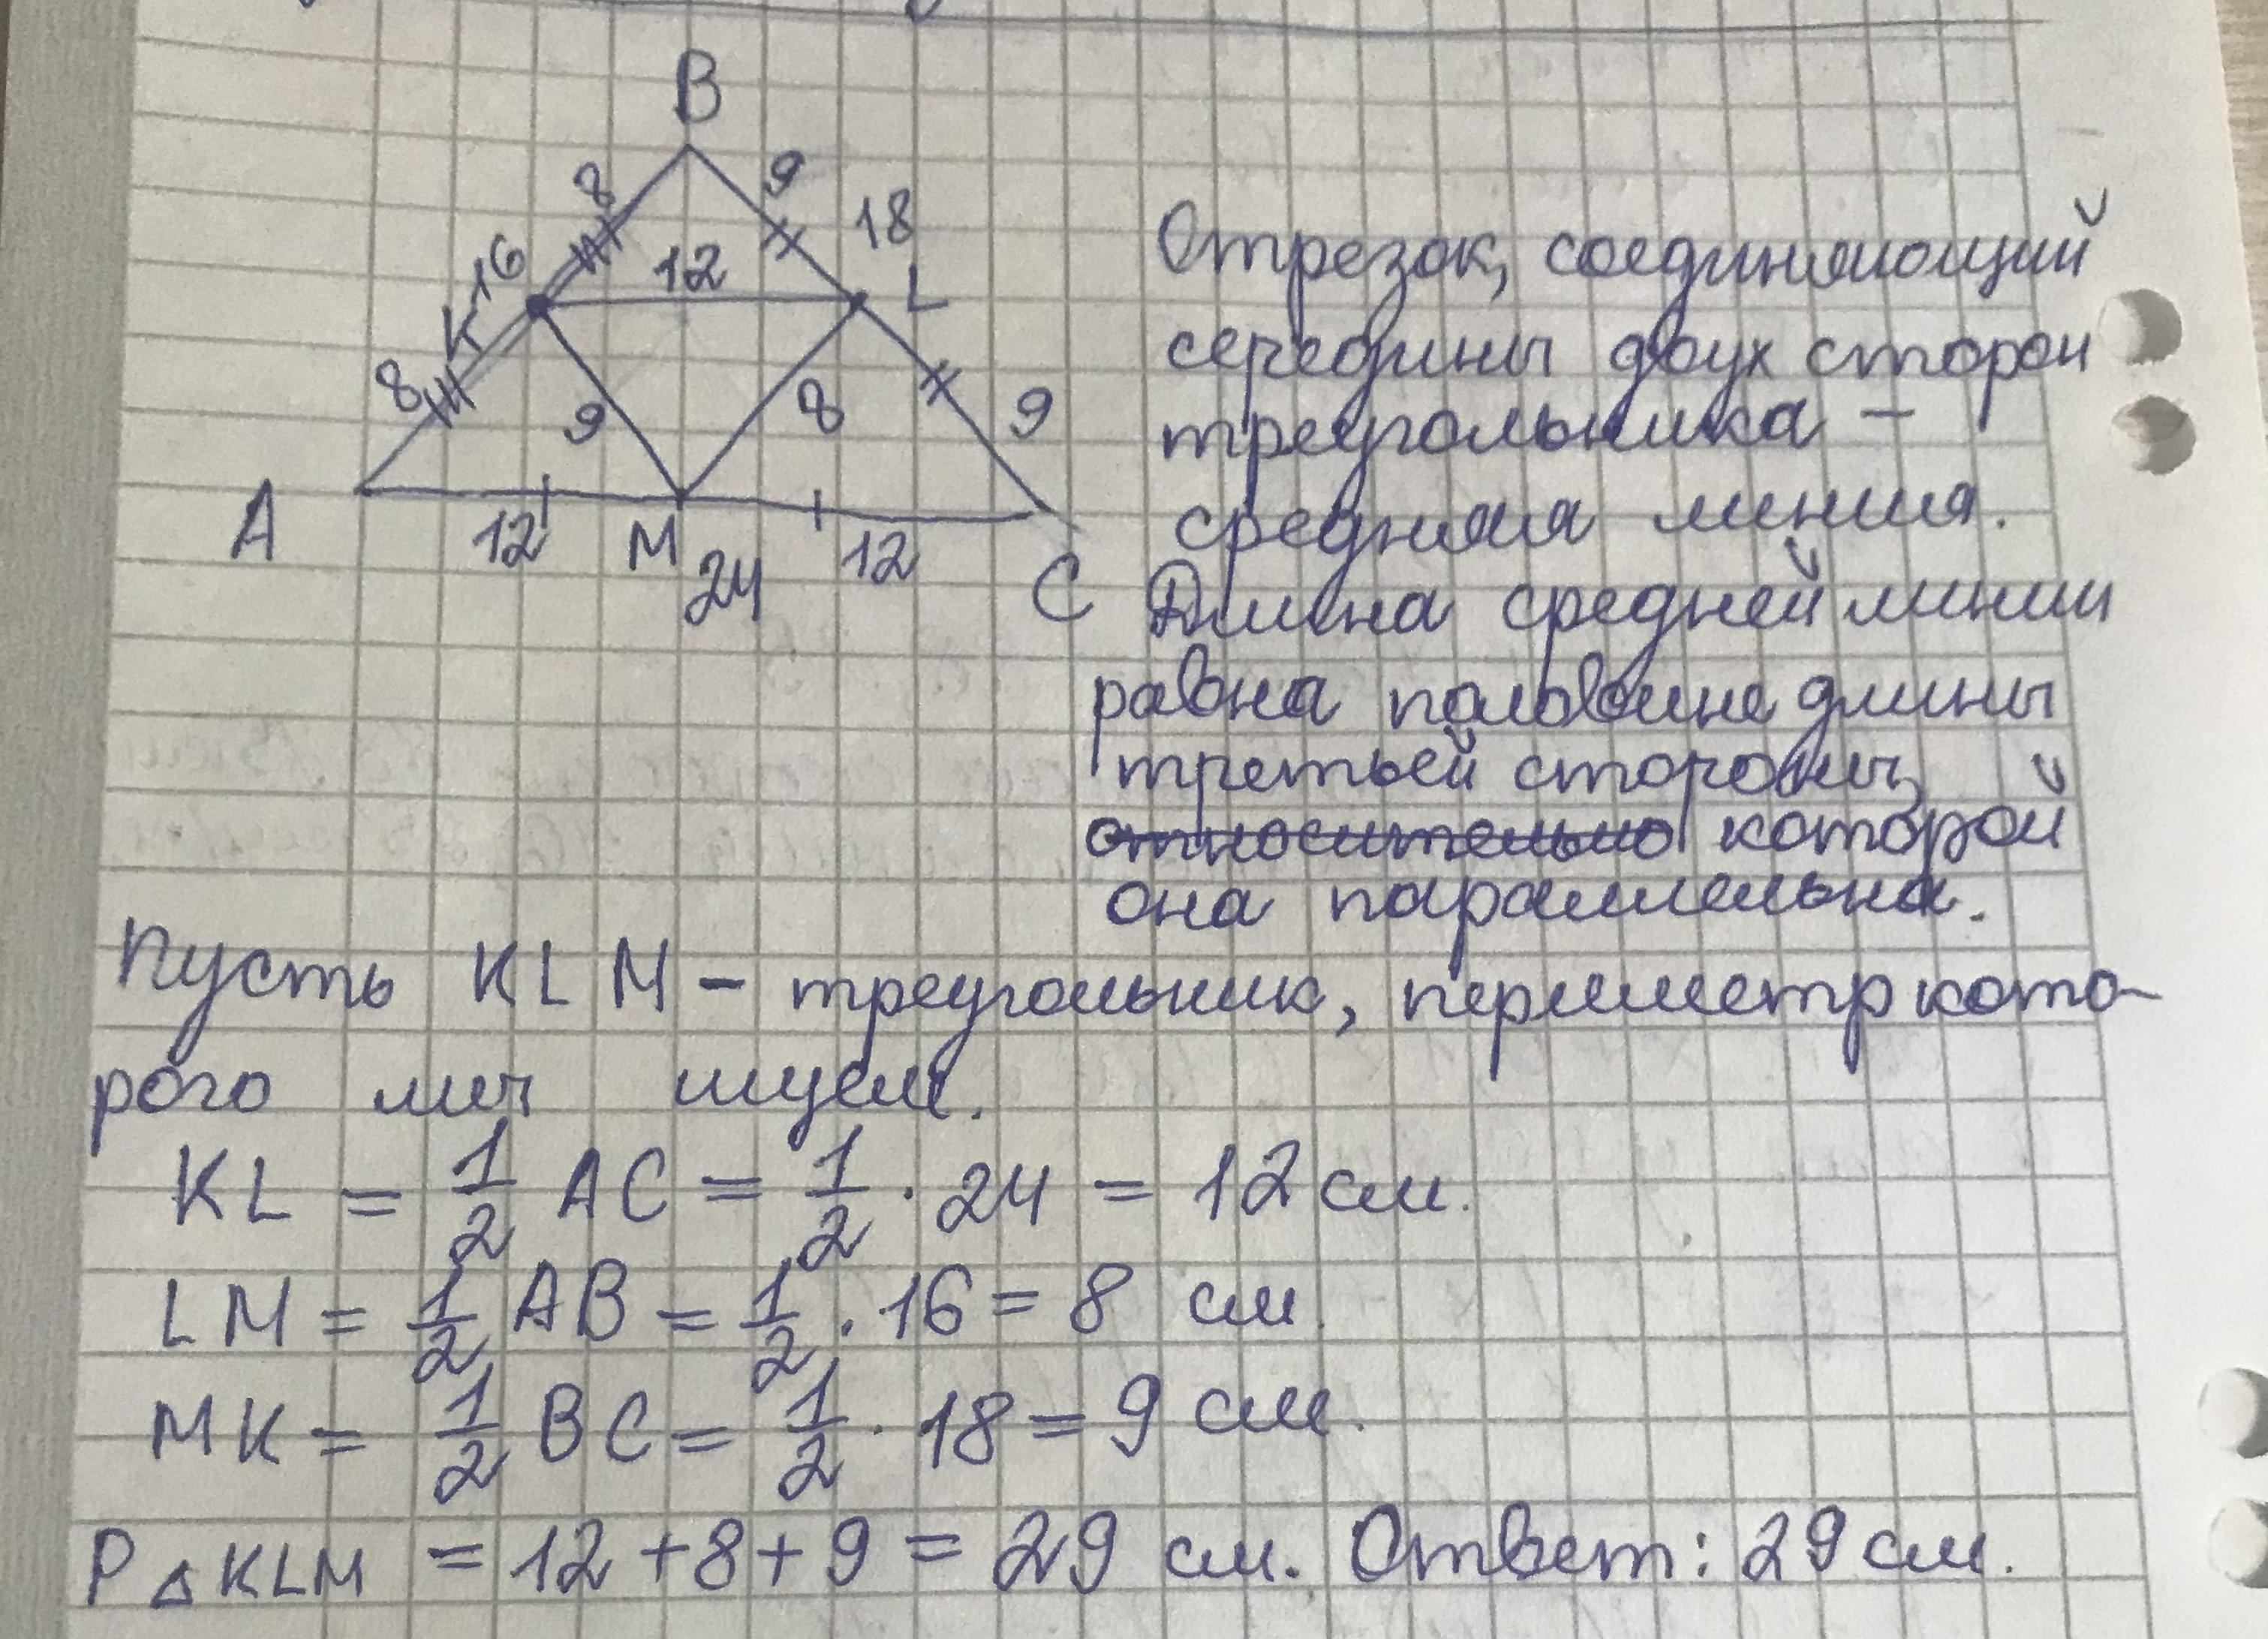 B
8
9
16
18
12
L
K
8
9
8
9
A
12
M
24
12
C
Отрезок, соединяющий
середины двух сторон
треугольника –
средняя линия.
Длина средней линии
равна половине длины
третьей стороны,
относительно которой
она параллельна.
Пусть KLM – треугольник, периметр кото-
рого мы ищем.
KL = 1/2 AC = 1/2 · 24 = 12 см.
LM = 1/2 AB = 1/2 · 16 = 8 см.
MK = 1/2 BC = 1/2 · 18 = 9 см.
P △KLM = 12 + 8 + 9 = 29 см. Ответ: 29 см.